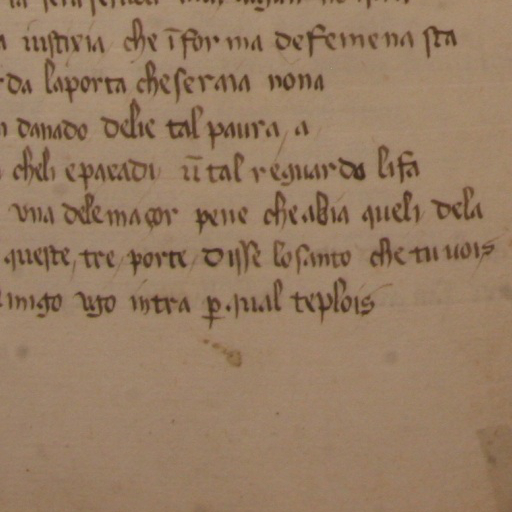 iustixia che ī forma de femena sta
da la porta che seraia nona
danado de lie tal paura a
cheli e paradi ū tal reguardo li fa
vna dele maçor pene che abia queli dela
queste tre porte Disse lo santo che tu uois
migo vgo intra p̱ qual te plois